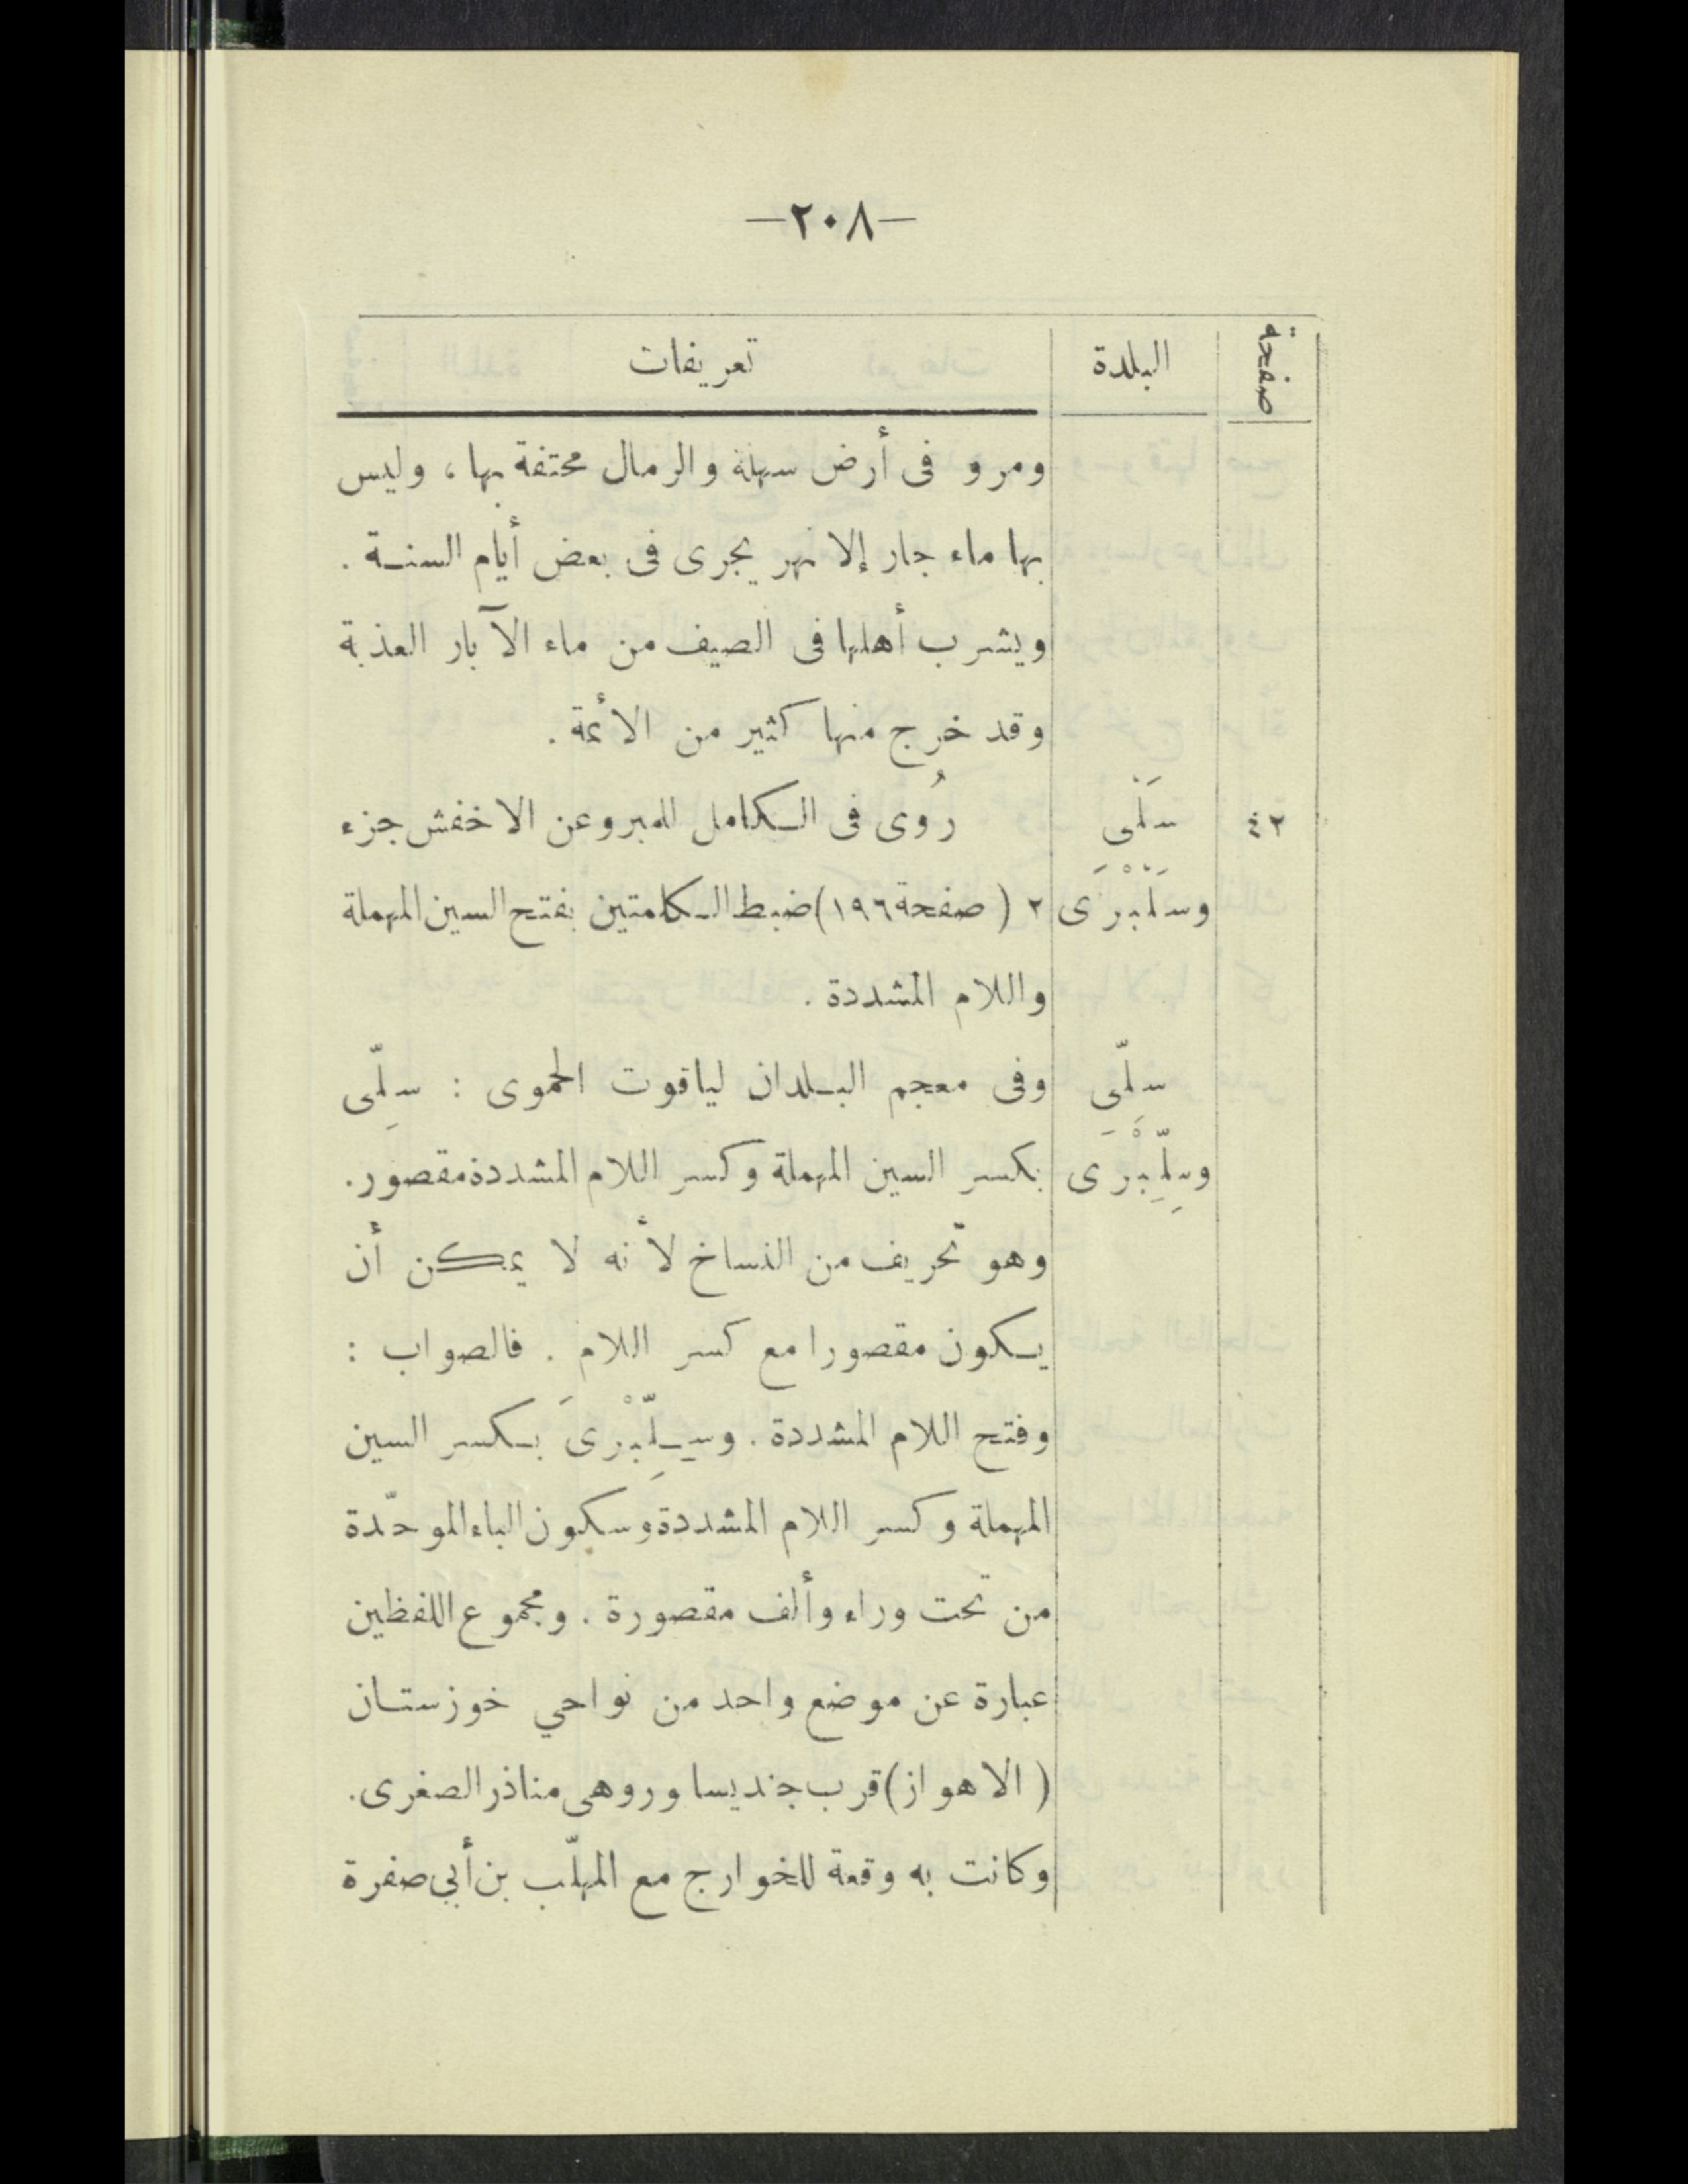 —٢٠٨—
صفحة البلدة تعريفات
ومرو فى أرض سهلة والرمال محتفة بها، وليس
بها ماء جار إلا نهر يجرى فى بعض أيام السنة .
ويشرب أهلها فى الصيف من ماء الآبار العذبة
وقد خرج منها كثير من الأئمة .
٤٢ سَلّى رُوى فى الكامل للمبرو عن الاخفش جزء
وسَلّبْرَى ٢ ( صفحة ١٩٦ ) ضبط الكلمتين بفتح السين المهملة
واللام المشددة .
سِلّى وفى معجم البلدان لياقوت الحموى : سِلّى
وسِلِّبْرَى بكسر السين المهملة وكسر اللام المشددة مقصور .
وهو تحريف من النساخ لأنه لا يمكن أن
يكون مقصورا مع كسر اللام . فالصواب :
وفتح اللام المشددة . وسِلِّبْرىَ بكسر السين
المهملة وكسر اللام المشددة وسكون الباء الموحّدة
من تحت وراء وألف مقصورة . ومجموع اللفظين
عبارة عن موضع واحد من نواحي خوزستان
( الاهواز ) قرب جنديسا ور وهى مناذر الصغرى .
وكانت به وقعة للخوارج مع المهلّب بن أبي صفرة